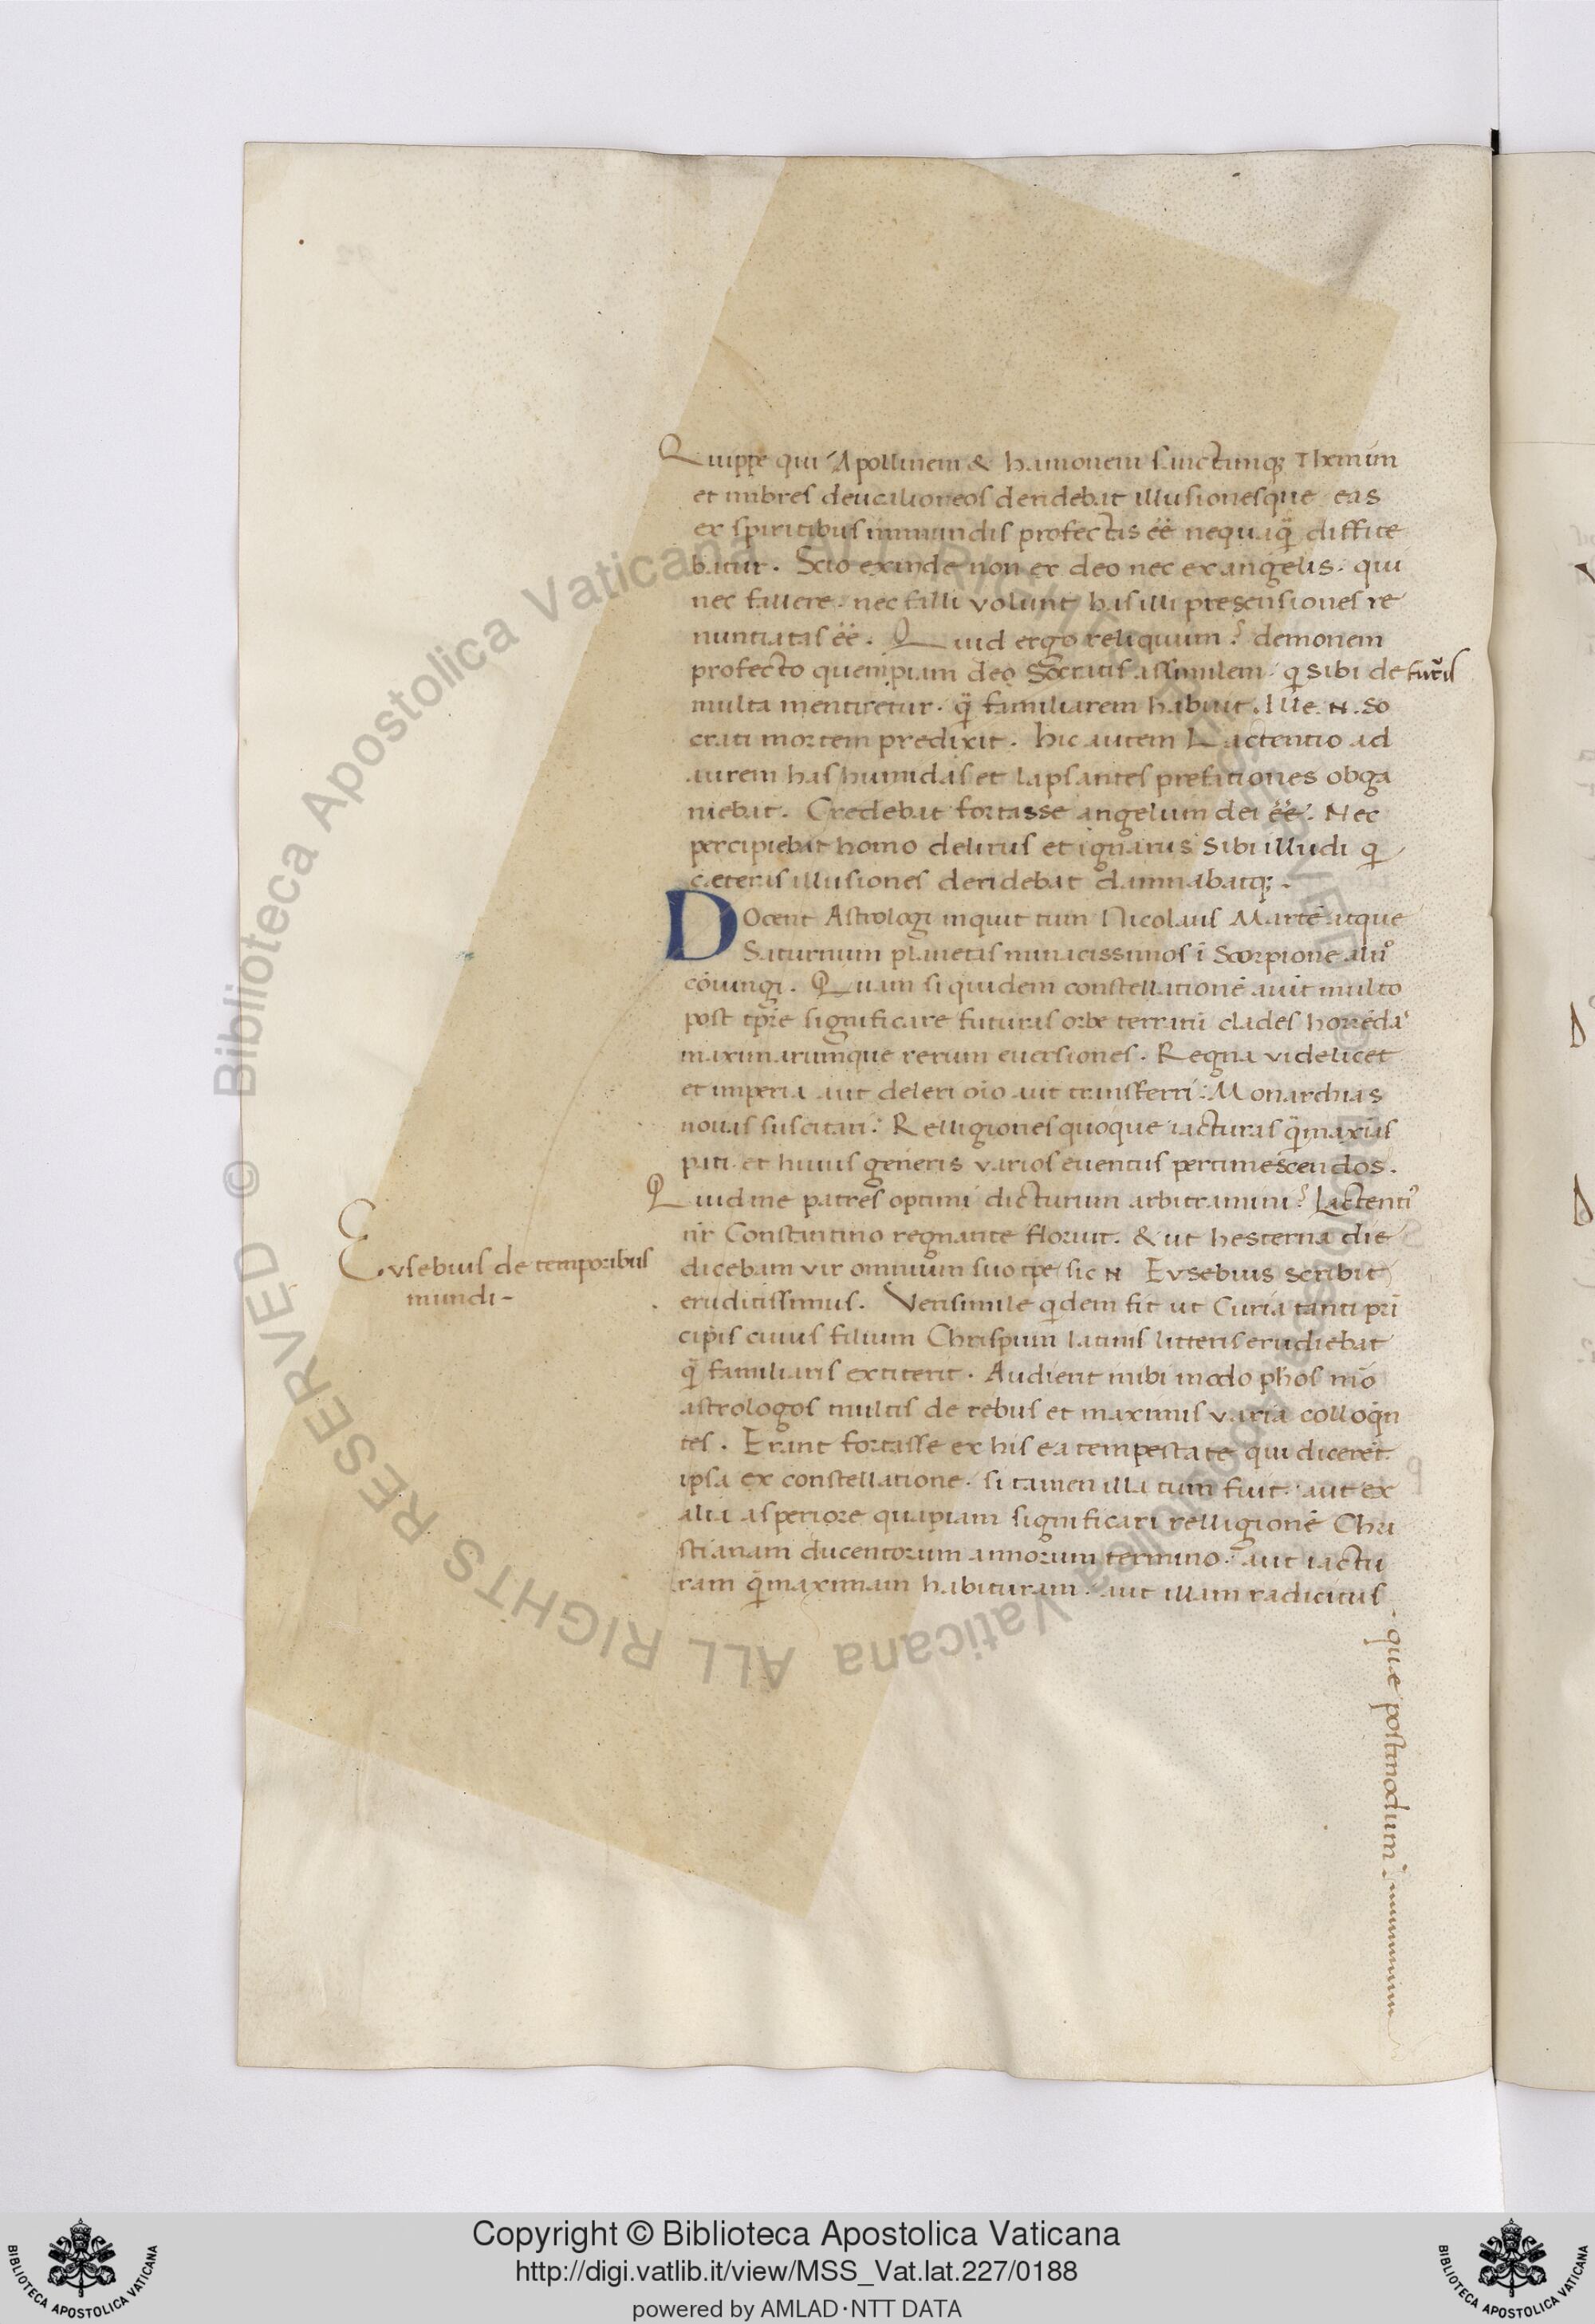 Quippe qui Apollinem & hamonem sanctamq; Themim
et imbres deucalioneos deridebat illusionesque eas
ex spiritibus immundis profectas eë nequaq̈ diffite
batur. Scio exinde non ex deo nec ex angelis. qui
nec fallere. nec falli volunt has illi presensiones re
nuntiatas eë. Quid ergo reliquum? demonem
profecto quempiam deo Socratis assimilem. q sibi de
multa mentiretur. q̈ familiarem habuit. Ille. N. So
crati mortem predixit. hic autem Lactentio ad
aurem has humidas et lapsantes prefationes obga
niebat. Credebat fortasse angelum dei eë. Nec
percipiebat homo delirus et ignarus sibi illudi q
cæteras illusiones deridebat damnabatq;.
Docent Astrologi inquit tum Nicolaus Martē atque
Saturnum planetas minacissimos ī Scorpione
cōiungi. Quam si quidem constellationē aiūt multo
post tpre significare futuras orbe terrarū clades horrēdas
maximarumque rerum euersiones. Regna videlicet
et imperia aut deleri oīo aut transferri: Monarchias
nouas suscitari: Relligiones quoque iacturas q̄maxīas
pati. et huius generis varios euentus pertimescendos.
Quid me patres optimi dicturum arbitramini? Lactenti9
nr̄ Constantino regnante floruit. & ut hesterna die
dicebam vir omnium suo tp̄e sic N Eusebius scribit
eruditissimus. Verisimile qdem fit ut Curia tanti prī
cipis cuius filium Chrispum latinis litteris erudiebat
q̈ familiaris extiterit. Audierit mihi modo phōs mō
astrologos multis de rebus et maximis varia colloqn
tes. Erant fortasse ex his ea tempestate qui dicerēt
ipsa ex constellatione. si tamen illa tum fuit. aut ex
alia asperiore quapiam significari relligionē Chri
stianam ducentorum annorum termino. aut iactu
ram q̄maximam habituram. aut illam radicitus
que postmodum
Eusebius de temporibus
mundi-
© Biblioteca Apostolica Vaticana ALL RIGHTS RESERVED
Copyright © Biblioteca Apostolica Vaticana
http://digi.vatlib.it/view/MSS_Vat.lat.227/0188
powered by AMLAD·NTT DATA
BIBLIOTECA APOSTOLICA VATICANA
BIBLIOTECA APOSTOLICA VATICANA